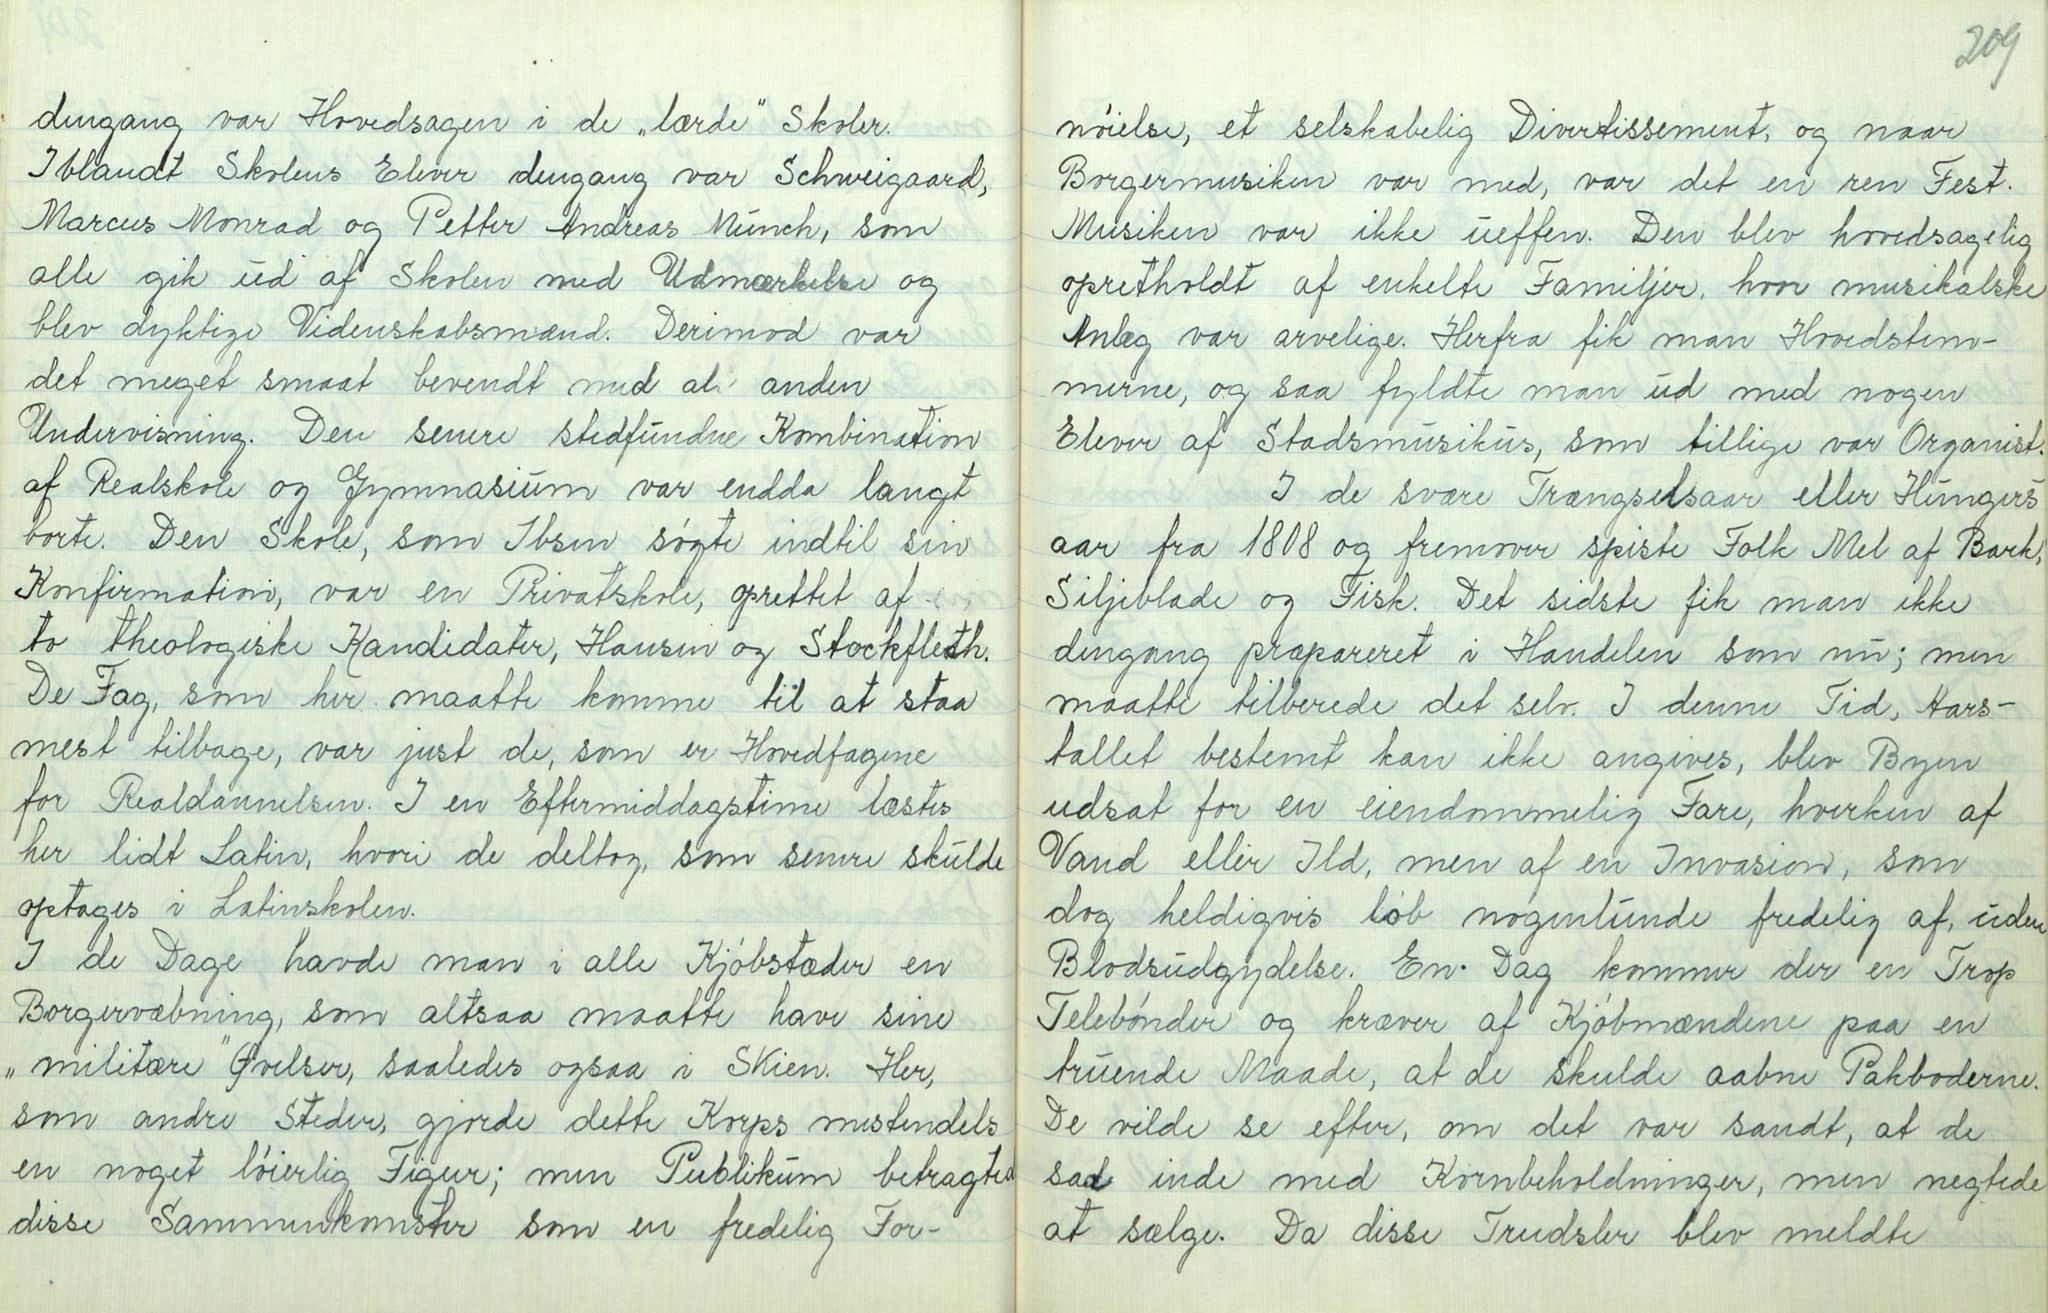 dengang var Hovedsagen i de „lærde" Skoler.
Iblandt Skolens Elever dengang var Schweigaard,
Marcus Monrad og Petter Andreas Munch, som
alle gik ud af Skolen med Udmærkelse og
blev dyktige Videnskabsmænd. Derimod var
det meget smaat bevendt med al anden
Undervisning. Den senere stedfundne Kombination
af Realskole og Gymnasium var endda langt
borte. Den Skole, som Ibsen søgte indtil sin
Konfirmation, var en Privatskole, oprettet af
to theologiske Kandidater, Hansen og Stockfleth.
De Fag, som her maatte komme til at staa
mest tilbage, var just de, som er Hovedfagene
for Realdannelsen. I en Eftermiddagstime læstes
her lidt Latin, hvori de deltog, som senere skulde
optages i Latinskolen.
I de Dage havde man i alle Kjøbstæder en
Borgervæbning, som altsaa maatte have sine
„militære" Øvelser, saaledes ogsaa i Skien. Her,
som andre Steder, gjorde dette Korps mestendels
en noget løierlig Figur; men Publikum betragted
disse Sammenkomster som en fredelig For-
209
nøielse, et selskabelig Divertissement, og naar
Borgermusiken var med, var det en ren Fest.
Musiken var ikke ueffen. Den blev hovedsagelig
opretholdt af enkelte Familjer, hvor musikalske
Anlæg var arvelige. Herfra fik man Hovedstem-
merne, og saa fyldte man ud med nogen
Elever af Stadsmusikus, som tillige var Organist.
I de svære Trængselsaar eller Hungers
aar fra 1808 og fremover spiste Folk Mel af Bark,
Siljeblade og Fisk. Det sidste fik man ikke
dengang præpareret i Handelen som nu; men
maatte tilberede det selv. I denne Tid, Aars-
tallet bestemt kan ikke angives, blev Byen
udsat for en eiendommelig Fare, hverken af
Vand eller Ild, men af en Invasion, som
dog heldigvis løb nogenlunde fredelig af, uden
Blodsudgydelse. En Dag kommer der en Trop
Telebønder og kræver af Kjøbmændene paa en
truende Maade, at de skulde aabne Pakboderne.
De vilde se efter, om det var sandt, at de
sad inde med Kornbeholdninger, men negtede
at sælge. Da disse Trudsler blev meldte